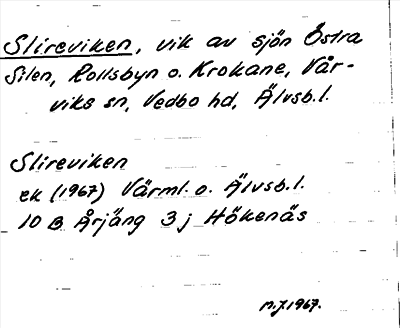 Slireviken, vik av sjön Östra
Silen, Rollsbyn o. Krokane, Vår-
viks sn, Vedbo hd, Älvsb.l.
Slireviken
ek (1967) Värml. o. Älvsb.l.
10 B Årjäng 3 j Hökenäs
N.J.1967.